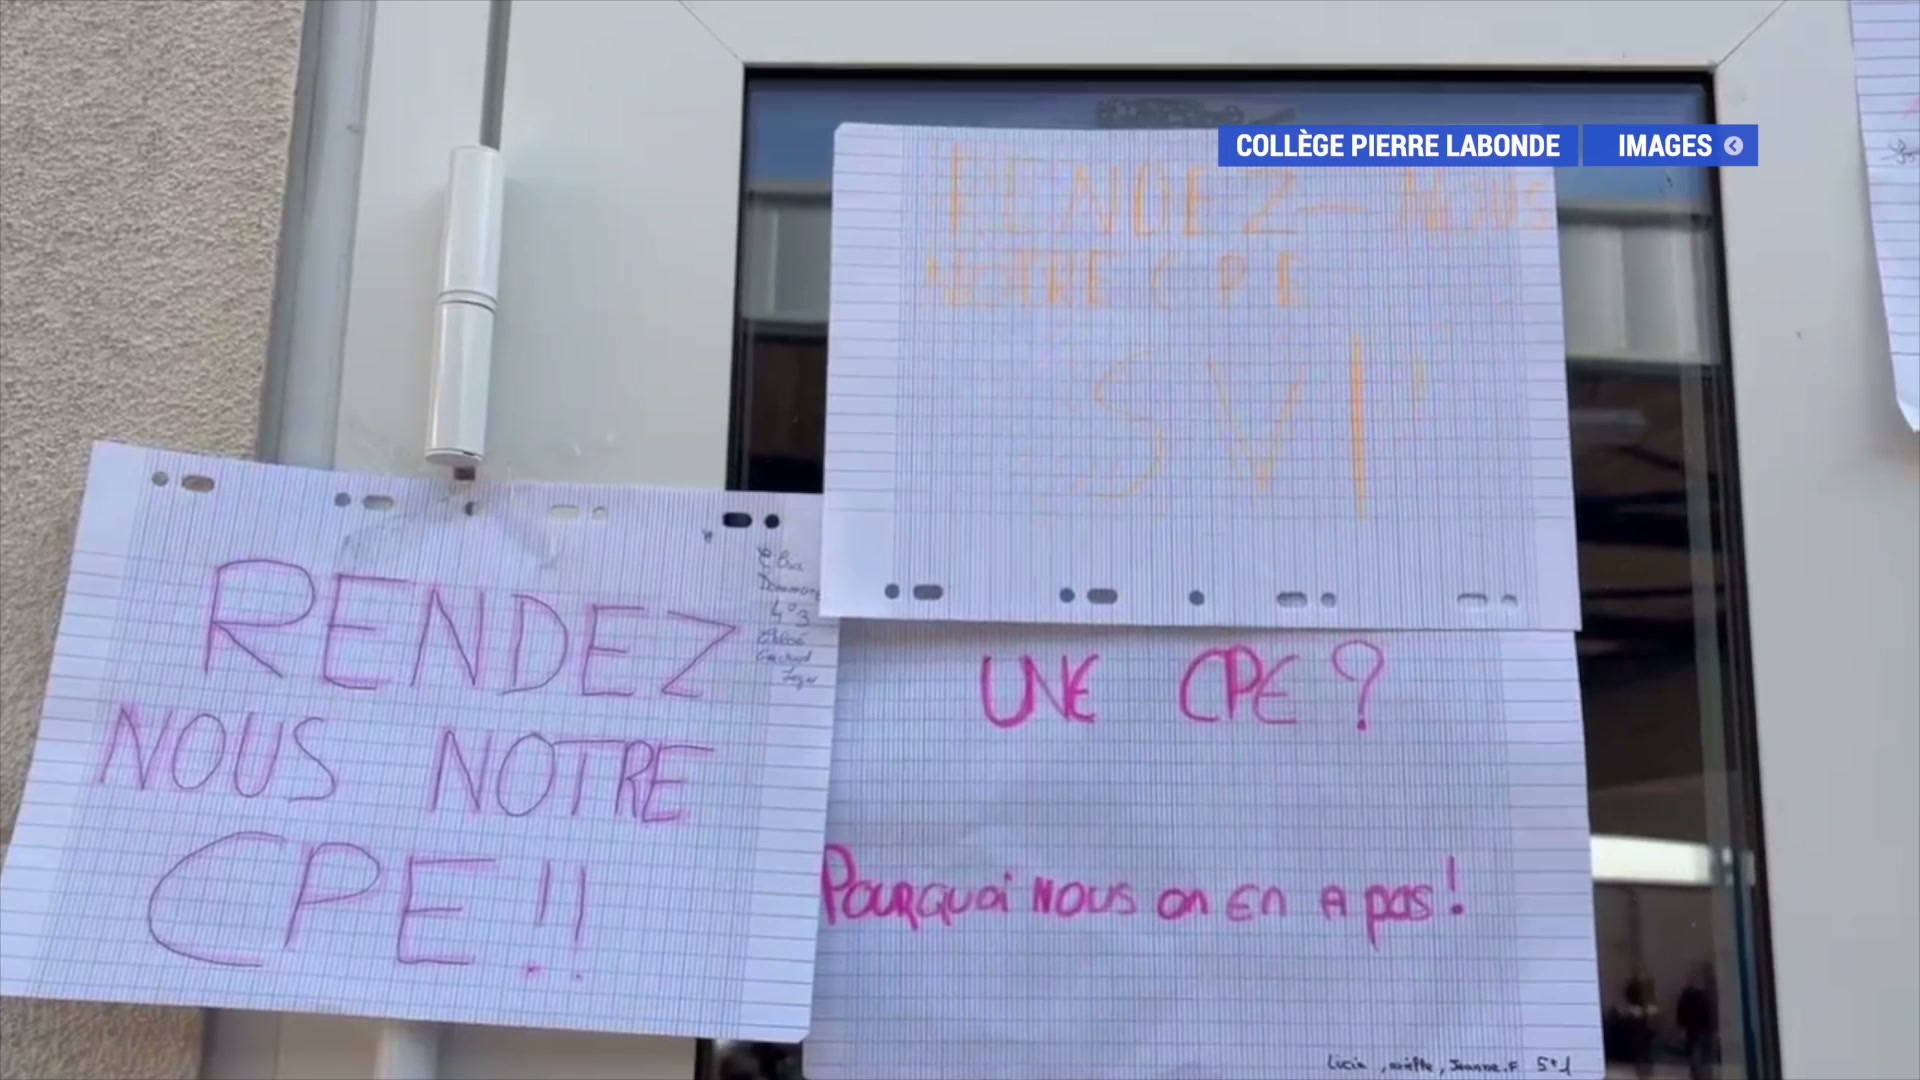 COLLÈGE PIERRE LABONDE
IMAGES
RENDEZ-NOUS
NOTRE CPE
SVP
RENDEZ
NOUS NOTRE
CPE !!
4°3
Chloé
UNE CPE ?
POURQUOI NOUS on En A pas !
Lucie, , Jeanne.F 5°1